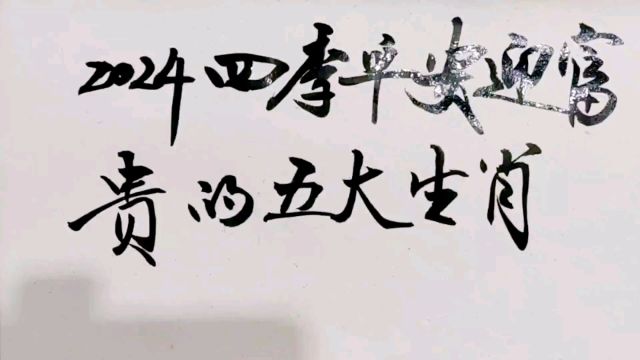 2024四季平安迎富
贵的五大生肖